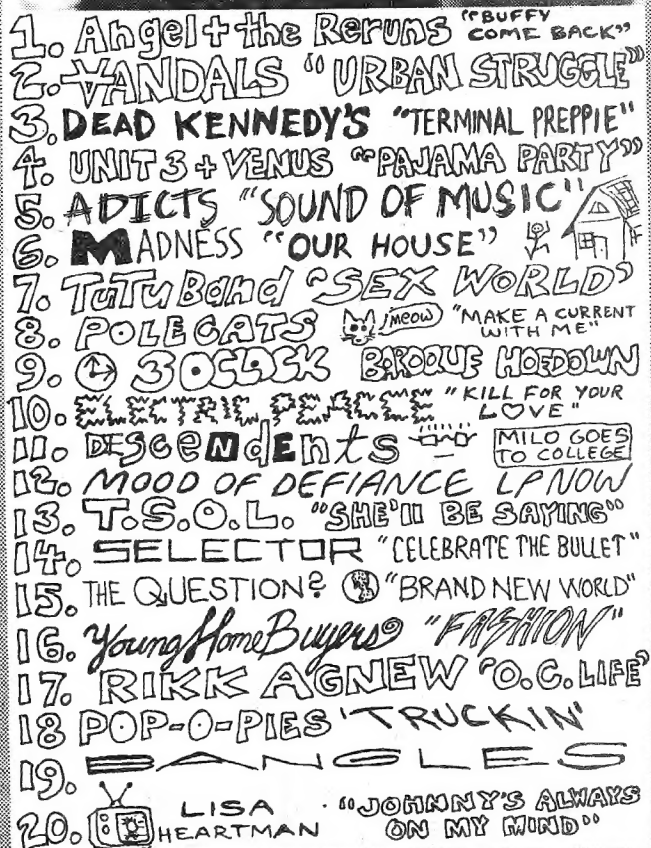 1. Angel + the Reruns "BUFFY COME BACK"
2. VANDALS "URBAN STRUGGLE"
3. DEAD KENNEDY'S "TERMINAL PREPPIE"
4. UNIT 3 + VENUS "PAJAMA PARTY"
5. ADICTS "SOUND OF MUSIC"
6. MADNESS "OUR HOUSE"
7. TuTu Band "SEX WORLD"
8. POLECATS meow "MAKE A CURRENT WITH ME"
9. 3 O'CLOCK BAROQUE HOEDOWN
10. ELECTRIC PEACE "KILL FOR YOUR L♡VE"
11. DEScendents MILO GOES TO COLLEGE
12. MOOD OF DEFIANCE LP NOW
13. T.S.O.L. "SHE'll BE SAYING"
14. SELECTOR "CELEBRATE THE BULLET"
15. THE QUESTION? "BRAND NEW WORLD"
16. Young Home Buyers "FASHION"
17. RIKK AGNEW "O.C. LIFE"
18 POP-O-PIES 'TRUCKIN'
19. BANGLES
20. LISA HEARTMAN "JOHNNY'S ALWAYS ON MY MIND"